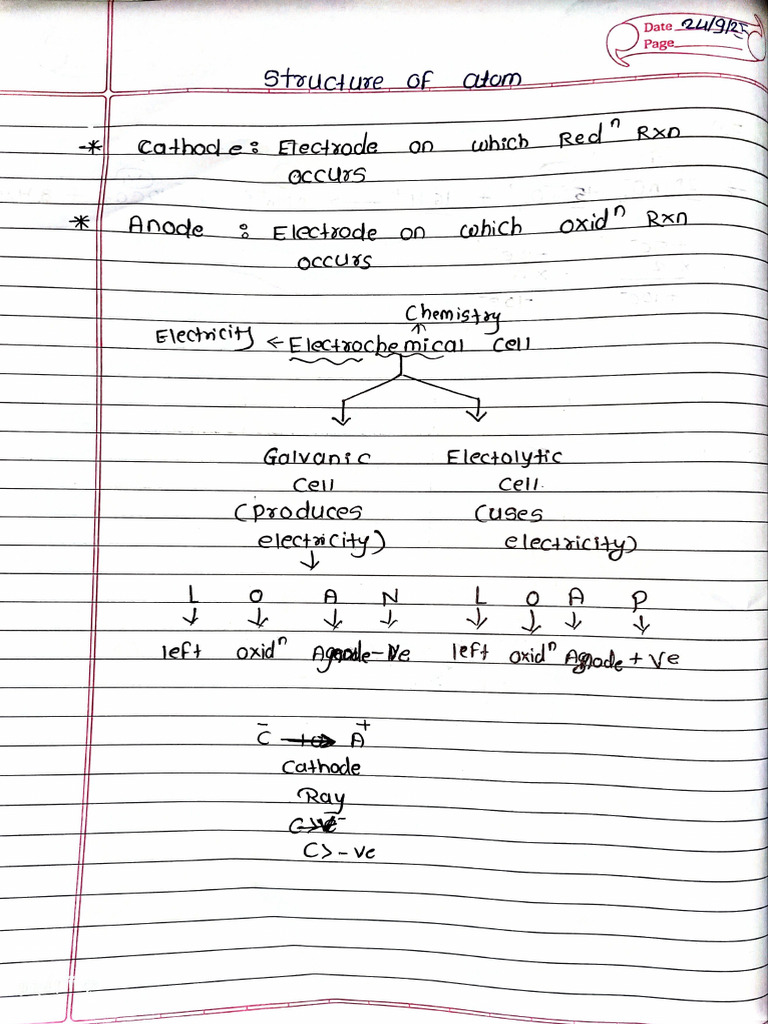 Date 24/9/25
Page
Structure of atom
* Cathode : Electrode on which Redⁿ Rxn
occurs
* Anode : Electrode on which oxidⁿ Rxn
occurs
Chemistry
↑
Electricity ← Electrochemical cell
Galvanic Electolytic
cell cell.
(produces (uses
electricity) electricity)
↓
L O A N L O A P
↓ ↓ ↓ ↓ ↓ ↓ ↓ ↓
left oxidⁿ Anode -Ve left oxidⁿ Anode + ve
C⁻ → A⁺
Cathode
Ray
C> -ve